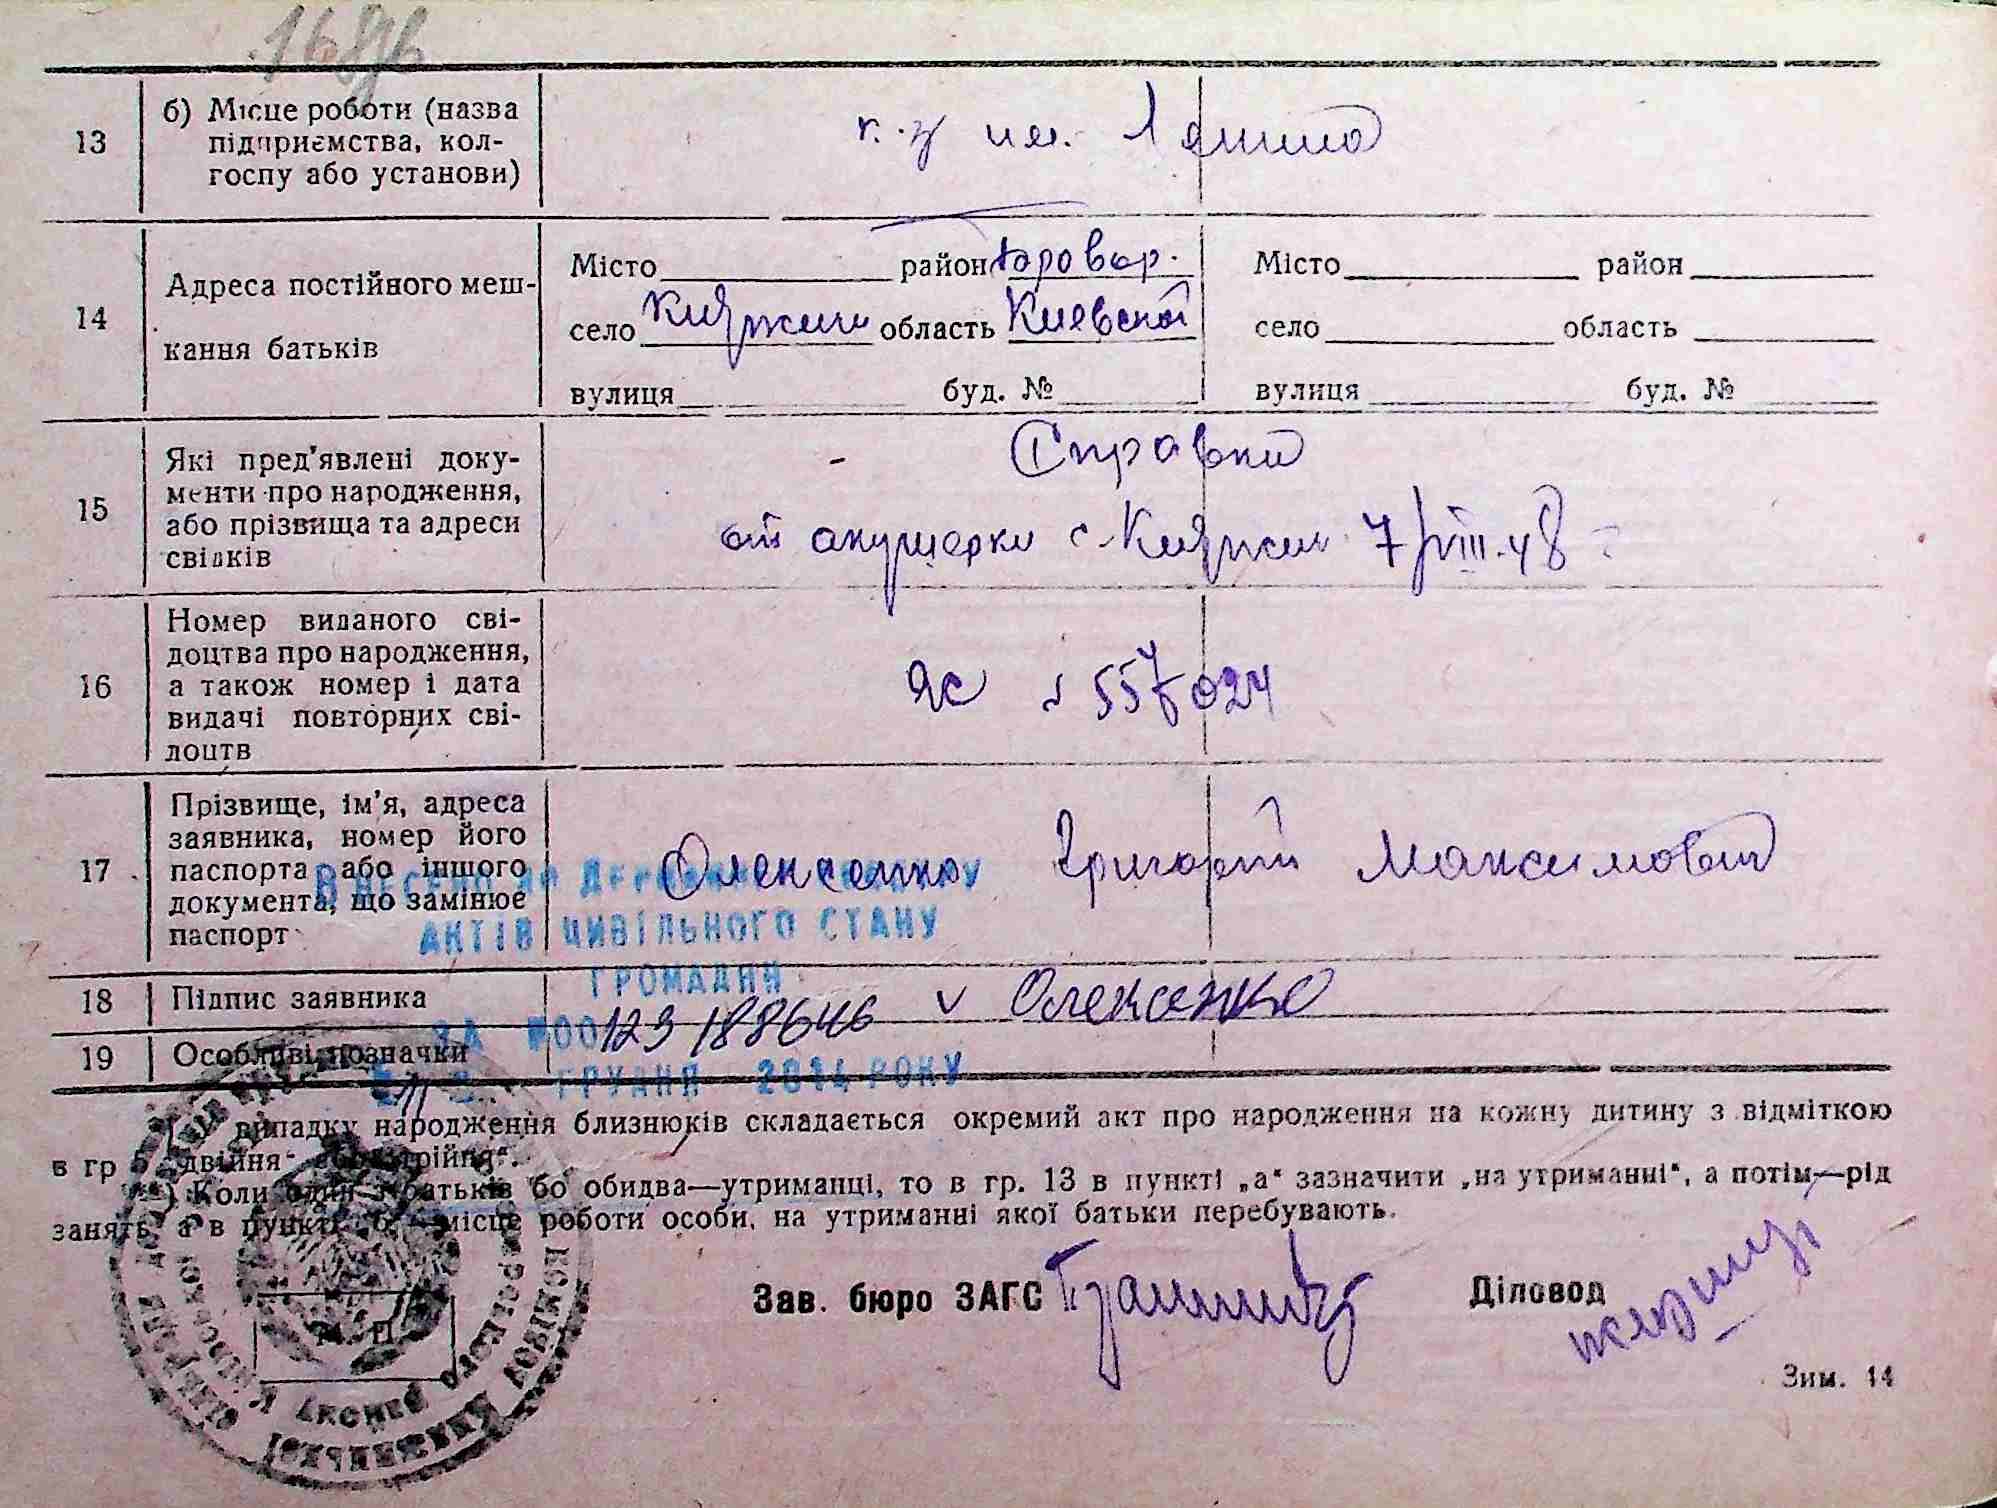 13
б) Місце роботи (назва
підприємства, кол-
госпу або установи)
к-з им. Ленина
14
Адреса постійного меш-
кання батьків
Місто район Бровар.
село Княжичи область Киевской
вулиця буд. №
Місто район
село область
вулиця буд. №
15
Які пред'явлені доку-
менти про народження,
або прізвища та адреси
свідків
Справка
от акушерки с. Княжичи 7/VIII.48
16
Номер виданого сві-
доцтва про народження,
а також номер і дата
видачі повторних сві-
доцтв
ЯС № 557024
17
Прізвище, ім'я, адреса
заявника, номер його
паспорта або іншого
документа, що замінює
паспорт
Олексенко Григорий Максимович
ВНЕСЕНО ДО ДЕРЖАВНОГО РЕЄСТРУ
АКТІВ ЦИВІЛЬНОГО СТАНУ
ГРОМАДЯН
18
Підпис заявника
v Олексенко
ЗА №00123188646
19
Особливі позначки
ГРУДНЯ 2014 РОКУ
У випадку народження близнюків складається окремий акт про народження на кожну дитину з відміткою
в гр 5 „двійня“ або „трійня“.
) Коли один з батьків або обидва—утриманці, то в гр. 13 в пункті „а“ зазначити „на утриманні“, а потім—рід
занять, а в пункті „б“—місце роботи особи, на утриманні якої батьки перебувають.
Зав. бюро ЗАГС
Діловод
М. П.
Зим. 14